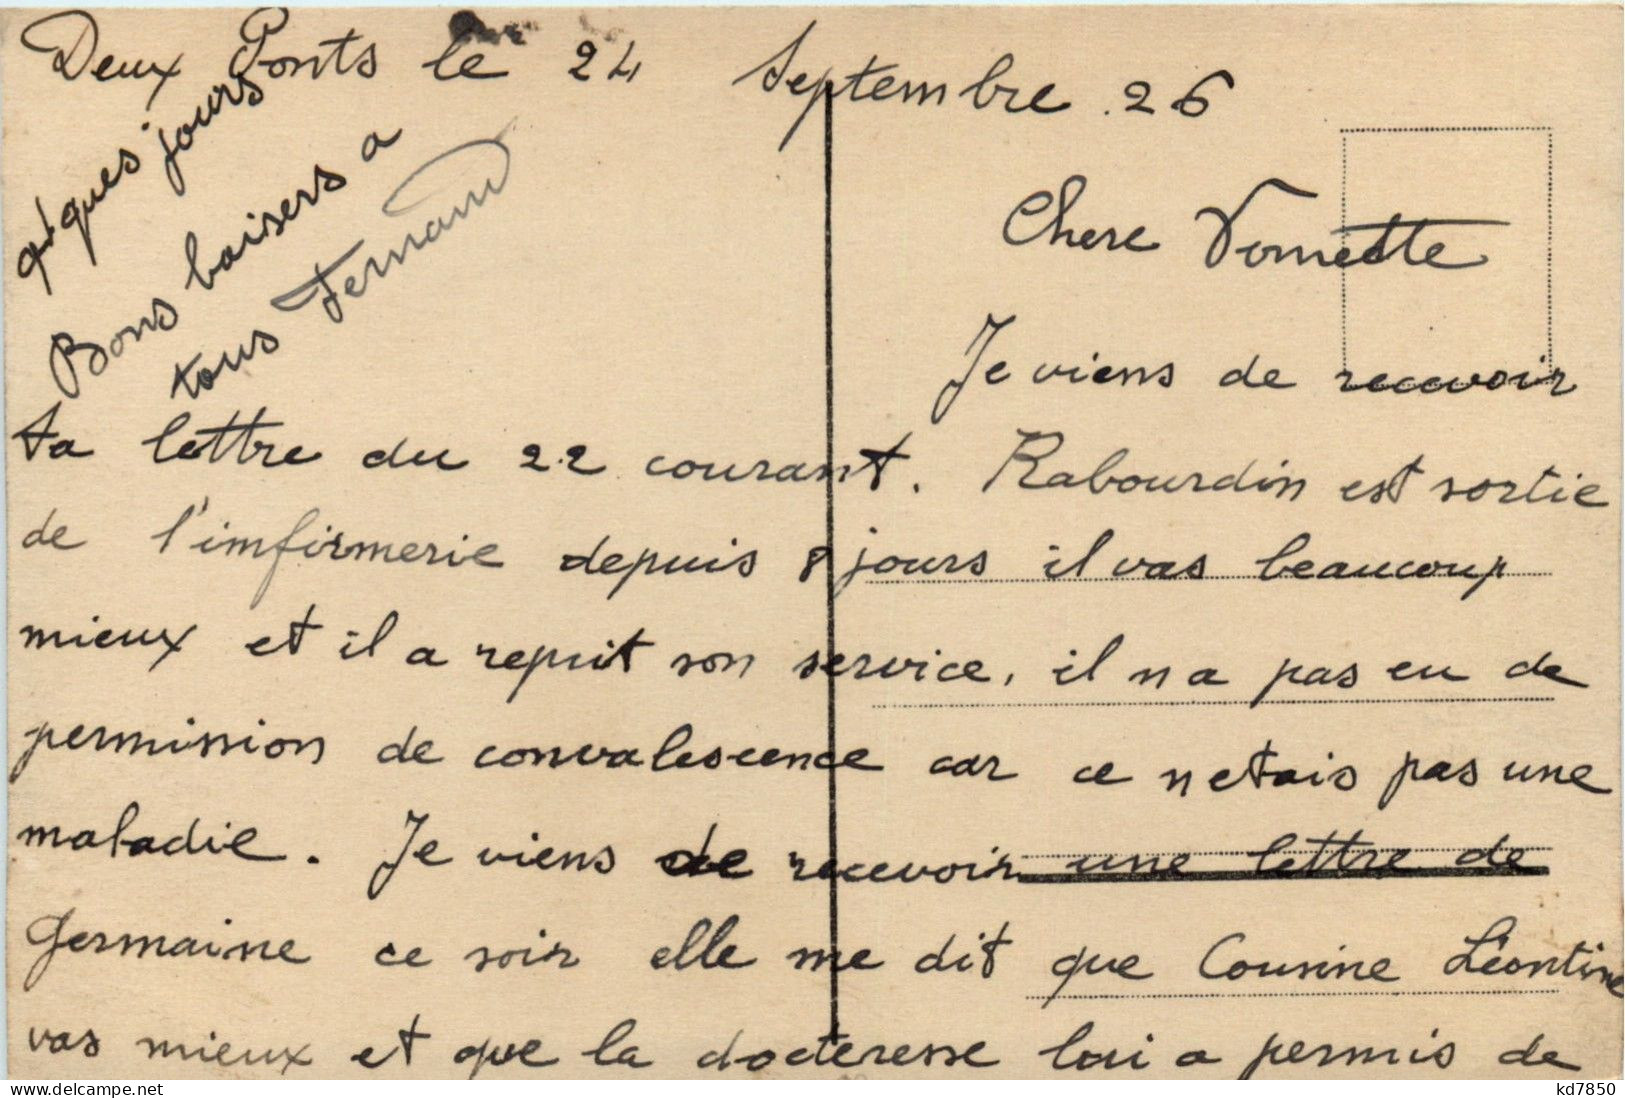 Deux Ponts le 24 Septembre 26
Chere Vonette
Je viens de recevoir
ta lettre du 22 courant. Rabourdin est sortie
de l'imfirmerie depuis 8 jours il vas beaucoup
mieux et il a reprit son service, il n a pas eu de
permission de convalescence car ce n etais pas une
maladie. Je viens de recevoir une lettre de
Germaine ce soir elle me dit que Cousine Léontine
vas mieux et que la docteresse lui a permis de
q'ques jours
Bons baisers a
tous Fernand
Delcampe.net
kd7850